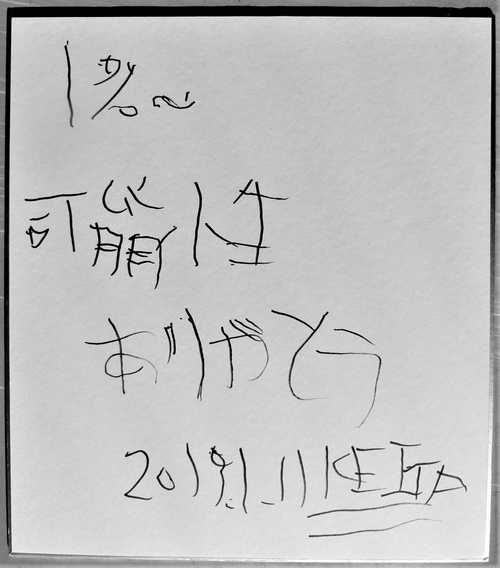 1%の
可能性
ありがとう
2019.1.11 KEITA